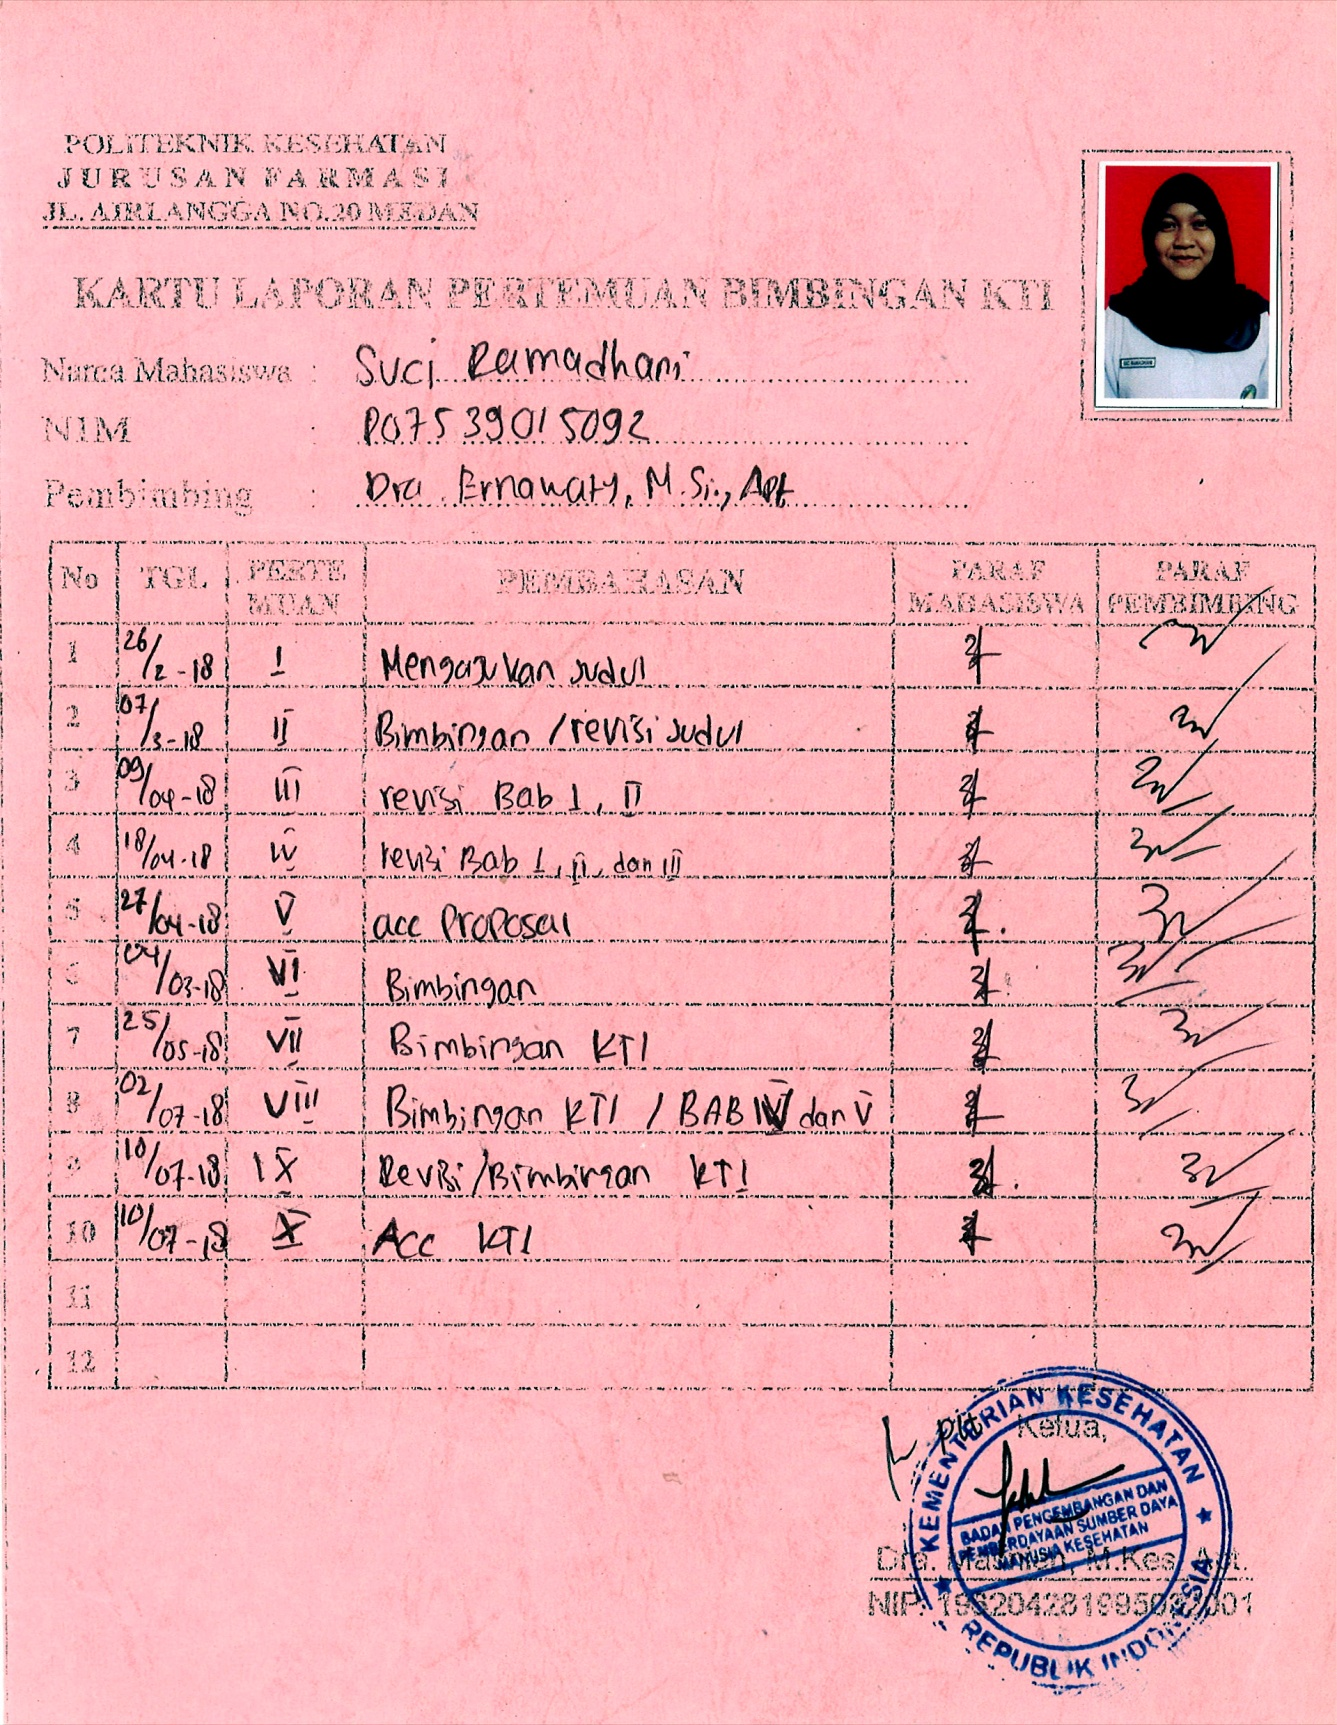 POLITEKNIK KESEHATAN
JURUSAN FARMASI
JL. AIRLANGGA NO.20 MEDAN
KARTU LAPORAN PERTEMUAN BIMBINGAN KTI
Nama Mahasiswa : Suci Ramadhani
NIM : P07539015092
Pembimbing : Dra. Ernawaty, M.Si., Apt
No TGL PERTE MUAN PEMBAHASAN PARAF MAHASISWA PARAF PEMBIMBING
1 26/2-18 I Mengajukan judul
2 07/3-18 II Bimbingan / revisi judul
3 09/04-18 III revisi Bab I, II
4 18/04-18 IV revisi Bab I, II, dan III
5 27/04-18 V acc Proposal
6 04/03-18 VI Bimbingan
7 25/05-18 VII Bimbingan KTI
8 02/07-18 VIII Bimbingan KTI / BAB IV dan V
9 10/07-18 IX Revisi/Bimbingan KTI
10 10/07-18 X Acc KTI
11
12
Plt Ketua,
KEMENTERIAN KESEHATAN
BADAN PENGEMBANGAN DAN
PEMBERDAYAAN SUMBER DAYA
MANUSIA KESEHATAN
REPUBLIK INDONESIA
Dra. M.Kes, Apt.
NIP.